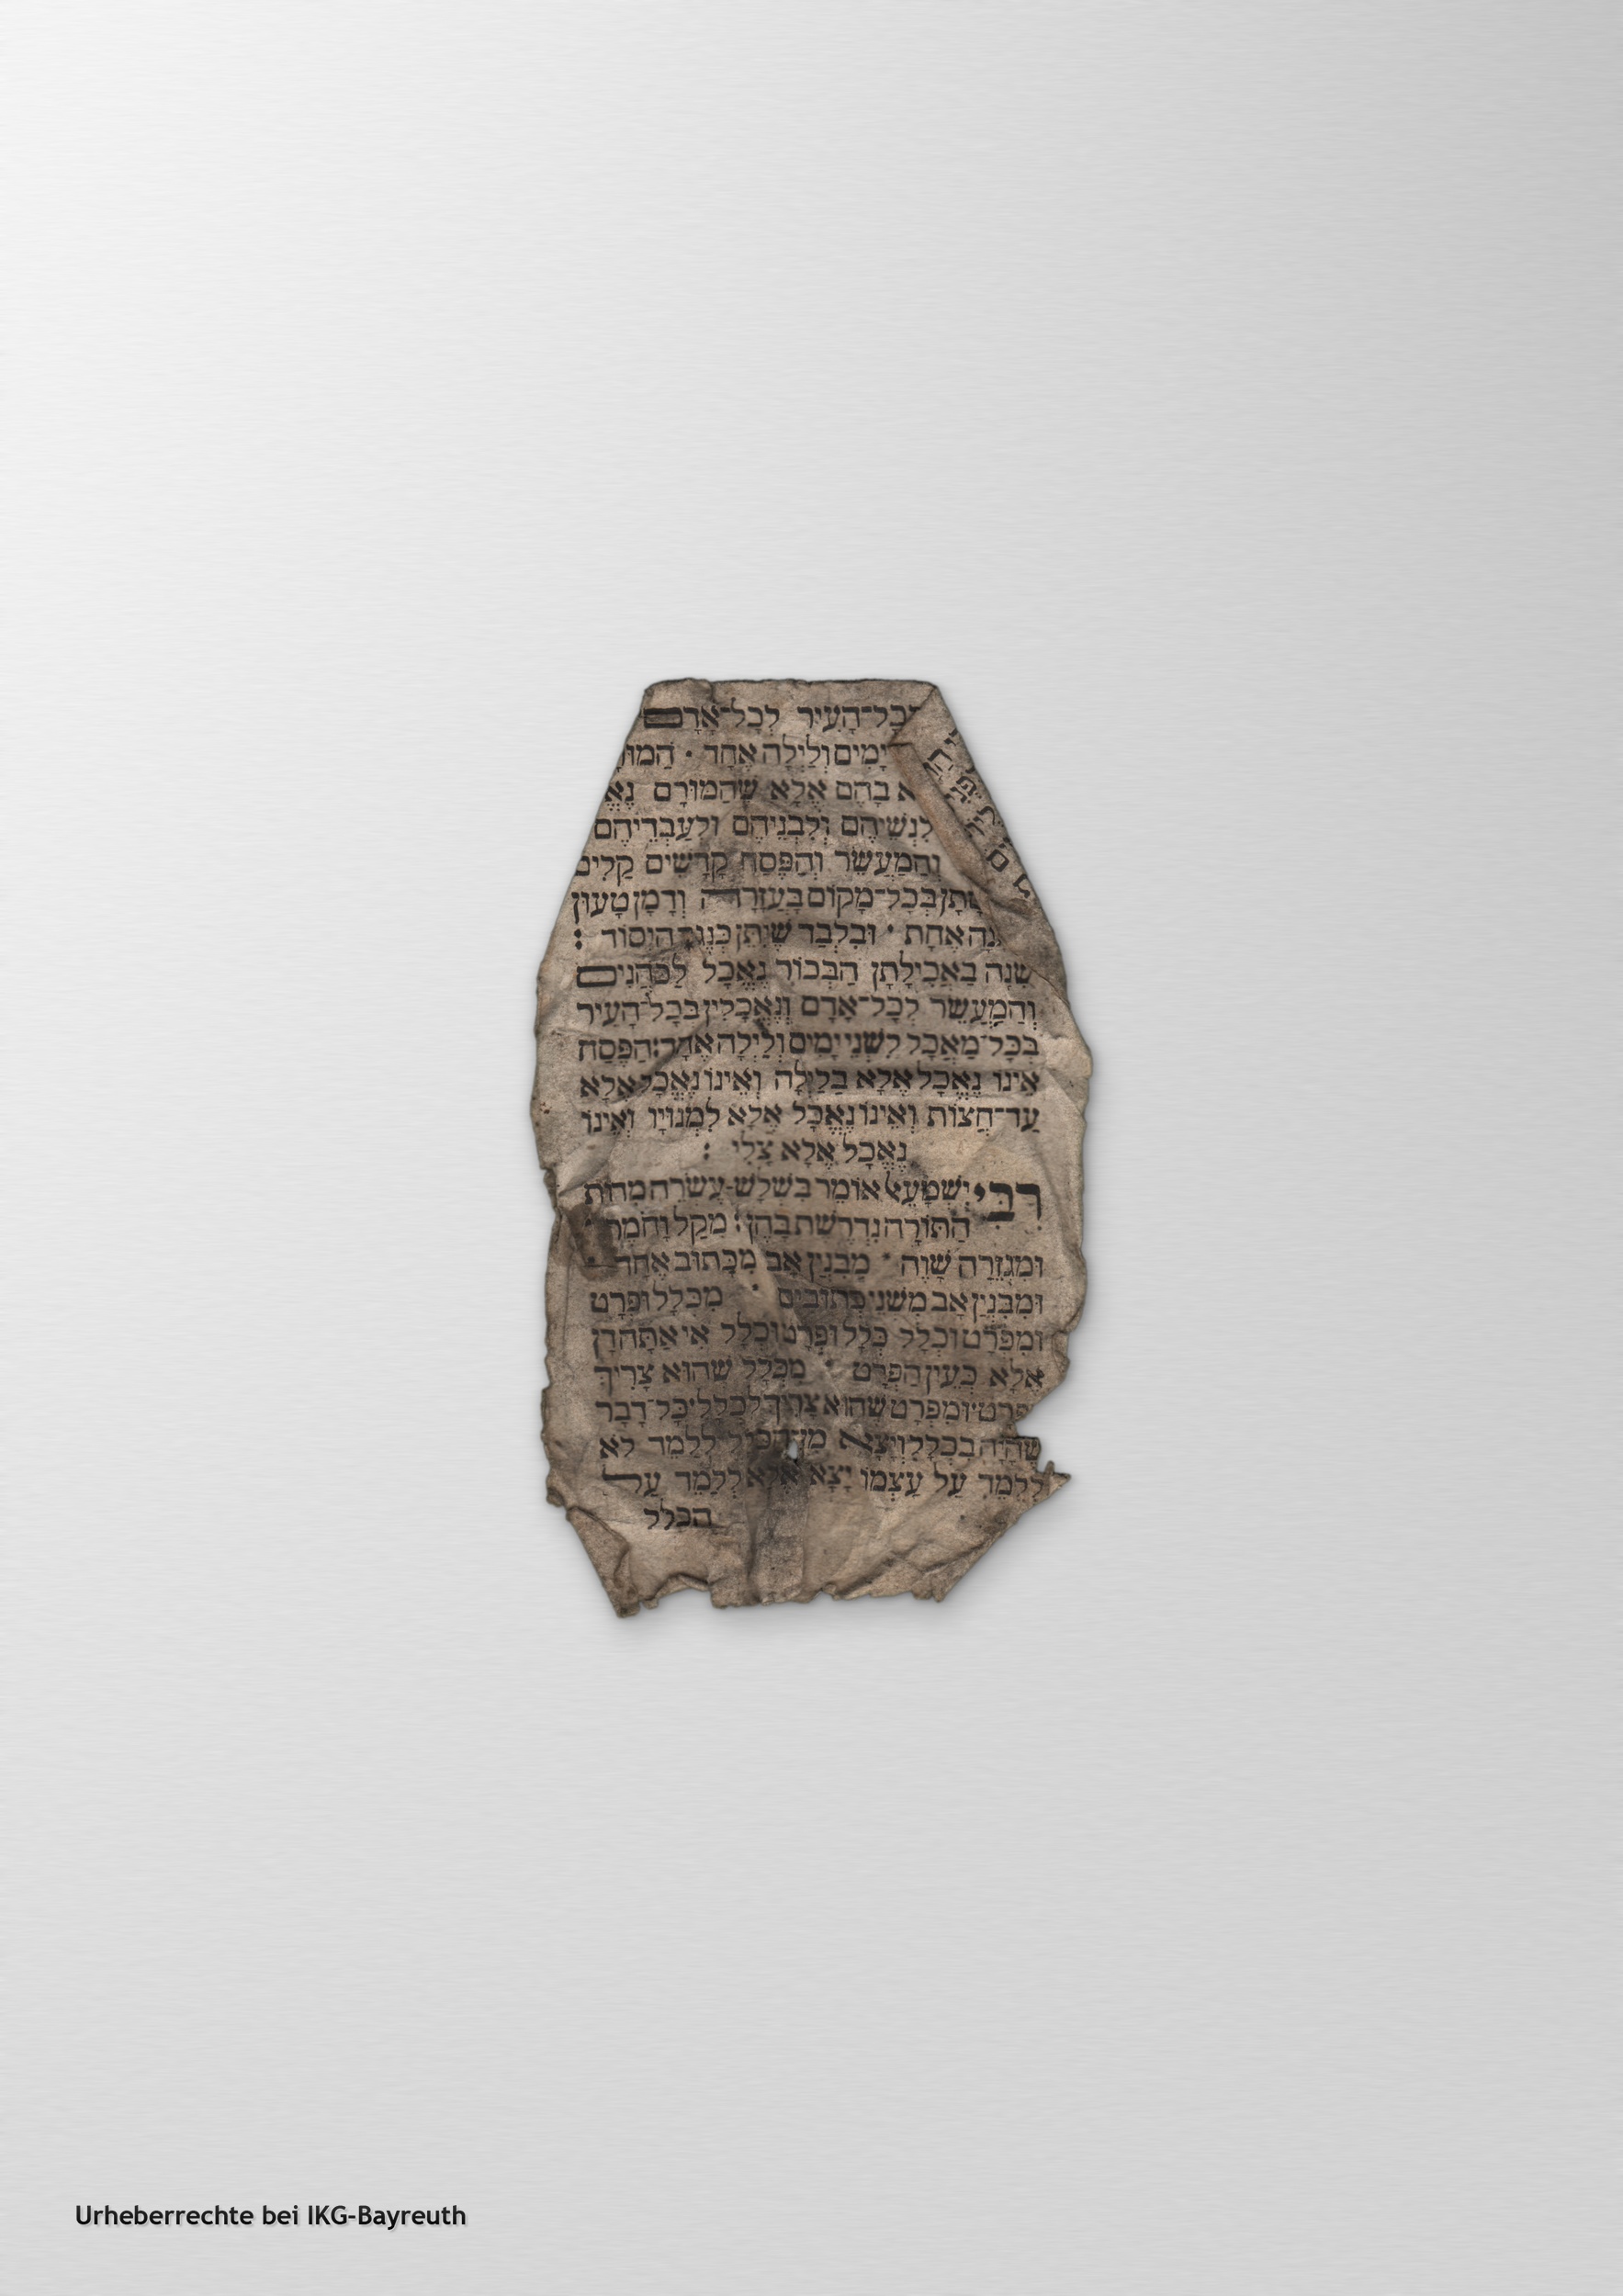 בְּכָל־הָעִיר לְכָל־אָדָם
יָמִים וְלַיְלָה אֶחָד · הַמּוּרָ
א בָהֶם אֶלָּא שֶׁהַמּוּרָם נֶאֱ
לִנְשֵׁיהֶם וְלִבְנֵיהֶם וּלְעַבְדֵיהֶם
וְהַמַּעֲשֵׂר וְהַפֶּסַח קָדָשִׁים קַלִּים
תָן בְּכָל־מָקוֹם בָּעֲזָרָה וְדָמָן טָעוּן
נָה אֶחָת · וּבִלְבַד שֶׁיִּתֵּן כְּנֶגֶד הַיְסוֹד :
שִׁנָּה בַאֲכִילָתָן הַבְּכוֹר נֶאֱכָל לַכֹּהֲנִים
וְהַמַּעֲשֵׂר לְכָל־אָדָם וְנֶאֱכָלִין בְּכָל־הָעִיר
בְּכָל־מַאֲכָל לִשְׁנֵי יָמִים וְלַיְלָה אֶחָד : הַפֶּסַח
אֵינוֹ נֶאֱכָל אֶלָּא בַלַּיְלָה וְאֵינוֹ נֶאֱכָל אֶלָּא
עַד־חֲצוֹת וְאֵינוֹ נֶאֱכָל אֶלָּא לִמְנוּיָו וְאֵינוֹ
נֶאֱכָל אֶלָּא צָלִי :
רַבִּי יִשְׁמָעֵאל אוֹמֵר בִּשְׁלֹשׁ־עֶשְׂרֵה מִדּוֹת
הַתּוֹרָה נִדְרֶשֶׁת בָּהֶן : מִקַּל וָחֹמֶר
וּמִגְּזֵרָה שָׁוֶה · מִבִּנְיַן אָב מִכָּתוּב אֶחָד ·
וּמִבִּנְיַן אָב מִשְּׁנֵי כְתוּבִים · מִכְּלָל וּפְרָט
וּמִפְּרָט וּכְלָל כְּלָל וּפְרָט וּכְלָל אִי אַתָּה דָן
אֶלָּא כְּעֵין הַפְּרָט · מִכְּלָל שֶׁהוּא צָרִיךְ
לִפְרָט וּמִפְּרָט שֶׁהוּא צָרִיךְ לִכְלָל כָּל־דָּבָר
שֶׁהָיָה בִכְלָל וְיָצָא מִן־הַכְּלָל לְלַמֵּד לֹא
לְלַמֵּד עַל עַצְמוֹ יָצָא אֶלָּא לְלַמֵּד עַל
הַכְּלָל
Urheberrechte bei IKG-Bayreuth